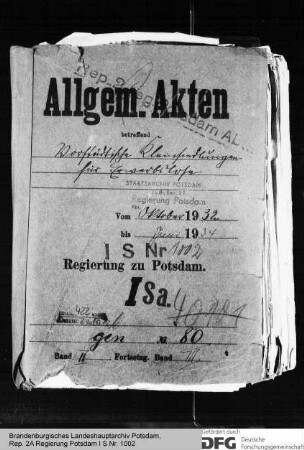 Rep. 2 Regierung Potsdam Abt.
Allgem. Akten
betreffend
Vorstädtische Kleinsiedlungen
für Erwerbslose
STAATSARCHIV POTSDAM
Regierung Potsdam
Vom Oktober 1932
bis Juni 1934
I S Nr 1002
Regierung zu Potsdam.
I Sa.
422
gen № 80
Band II Fortsetzg. Band III
Brandenburgisches Landeshauptarchiv Potsdam,
Rep. 2A Regierung Potsdam I S Nr. 1002
Gefördert durch
DFG Deutsche
Forschungsgemeinschaft